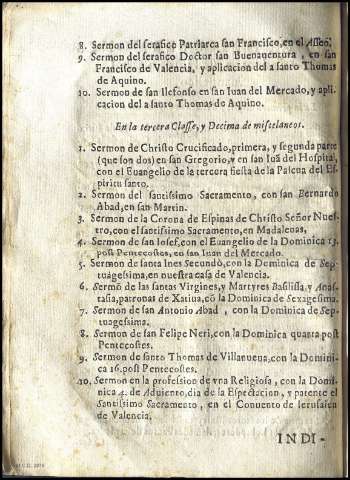 8. Sermon del serafico Patriarca san Francisco, en el Asseo.
9. Sermon del serafico Doctor san Buenauentura, en san
Francisco de Valencia, y aplicacion del a santo Thomas
de Aquino.
10. Sermon de san Ilefonso en san Iuan del Mercado, y apli-
cacion del a santo Thomas de Aquino.
En la tercera Classe, y Decima de miscelaneos.
1. Sermon de Christo Crucificado, primera, y segunda parte
(que son dos) en san Gregorio, y en san Iuā del Hospital,
con el Euangelio de la tercera fiesta de la Pascua del Es-
piritu santo.
2. Sermon del santissimo Sacramento, con san Bernardo
Abad, en san Martin.
3. Sermon de la Corona de Espinas de Christo Señor Nues-
tro, con el santissimo Sacramento, en Madalenas,
4. Sermon de san Iosef, con el Euangelio de la Dominica 13.
post Pentecostes, en san Iuan del Mercado.
5. Sermon de santa Ines Secundo, con la Dominica de Sep-
tuagesima, en nuestra casa de Valencia.
6. Sermō de las santas Virgines, y Martyres Basilissa, y Anas-
tasia, patronas de Xatiua, cō la Dominica de Sexagesima.
7. Sermon de san Antonio Abad, con la Dominica de Sep-
tuagesima.
8. Sermon de san Felipe Neri, con la Dominica quarta post
Pentecostes.
9. Sermon de santo Thomas de Villanueua, con la Domini-
ca 16. post Pentecostes.
10. Sermon en la profession de vna Religiosa, con la Domi-
nica 4. de Aduiento, dia de la Espectacion, y patente el
Santissimo Sacramento, en el Conuento de Ierusalen
de Valencia.
INDI-